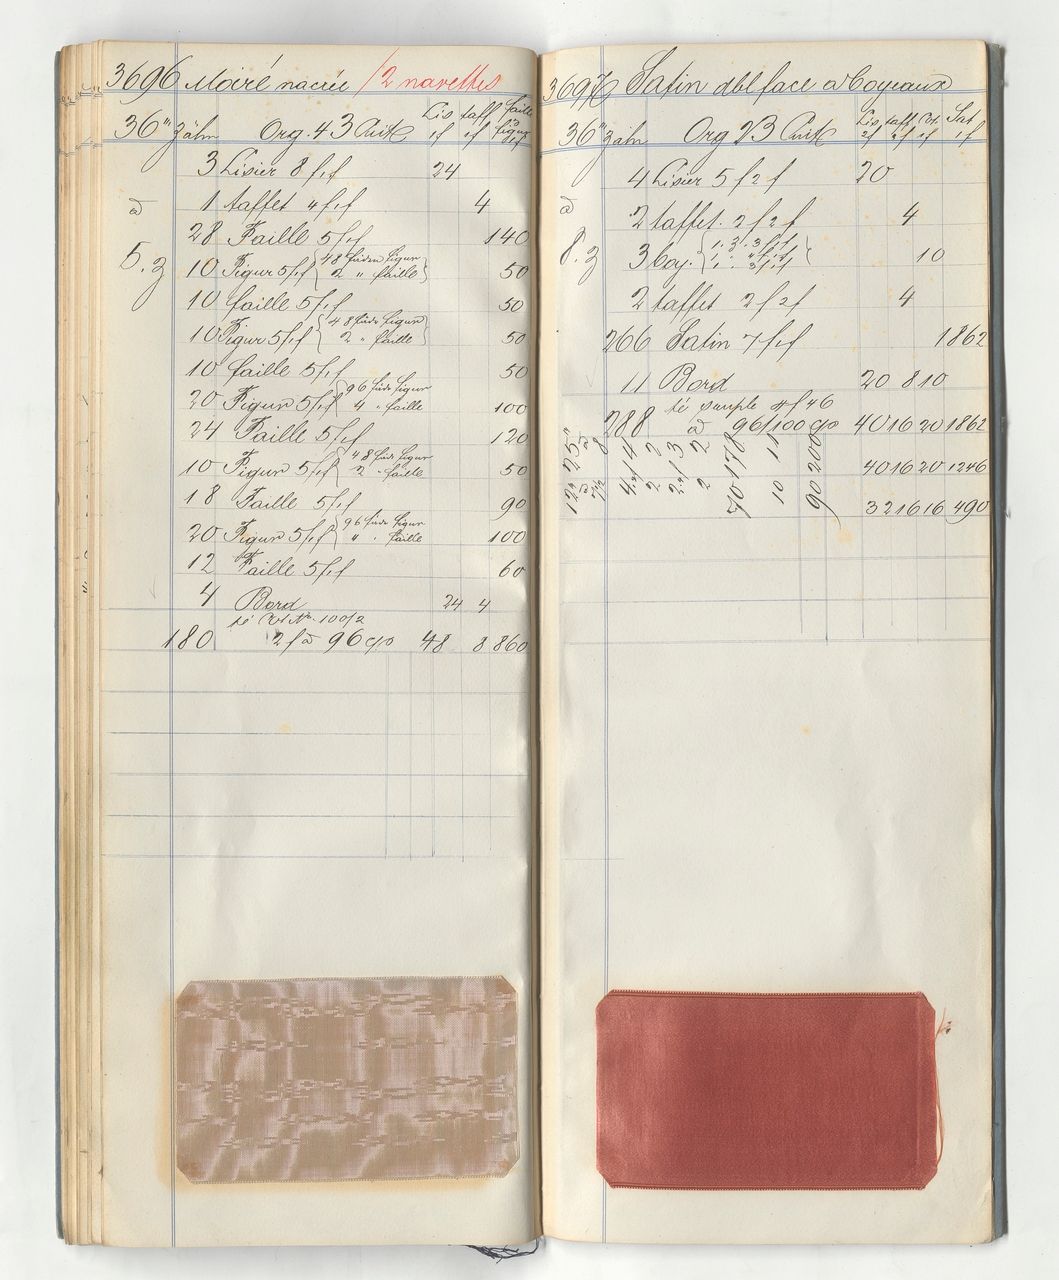 3696 Moiré nacrée /2 navettes
36''' Zähn Org. 43 Cuit Lis taff faille
1f 1f figur
3 Lisier 8 f 1 f 24
à 1 taffet 4 f 1 f 4
28 Faille 5 f 1 f 140
5.3 10 Figur 5 f 1 f { 48 fäden Figur 50
2 " faille }
10 faille 5 f 1 f 50
10 Figur 5 f 1 f { 48 fäd Figur 50
2 " faille }
10 faille 5 f 1 f 50
20 Figur 5 f 1 f { 96 fäd Figur 100
4 " faille
24 Faille 5 f 1 f 120
10 Figur 5 f 1 f { 48 fäd Figur 50
2 " faille
18 Faille 5 f 1 f 90
20 Figur 5 f 1 f { 96 fäd Figur 100
4 " faille
12 Faille 5 f 1 f 60
4 Bord 24 4
té No. 100/2
180 2 f à 96 48 8 860
3697 Satin dbl face à boyeaux
36''' Zähn Org 23 Cuit Lis taff Sat
2f 1f 1f
4 Lisier 5 f 2 f 20
à 2 taffet. 2 f 2 f 4
8.3 3 boy. 10
2 taffet 2 f 2 f 4
266 Satin 7 f 1 f 1862
11 Bord 20 8 10
té souple 4 f 46
288 à 96/100 40 16 20 1862
40 16 20 1246
32 16 16 490
25''' à 8 4 14 2 2 2 13 2 2 178 11 200
12''' à 7 1/2 70 10 90